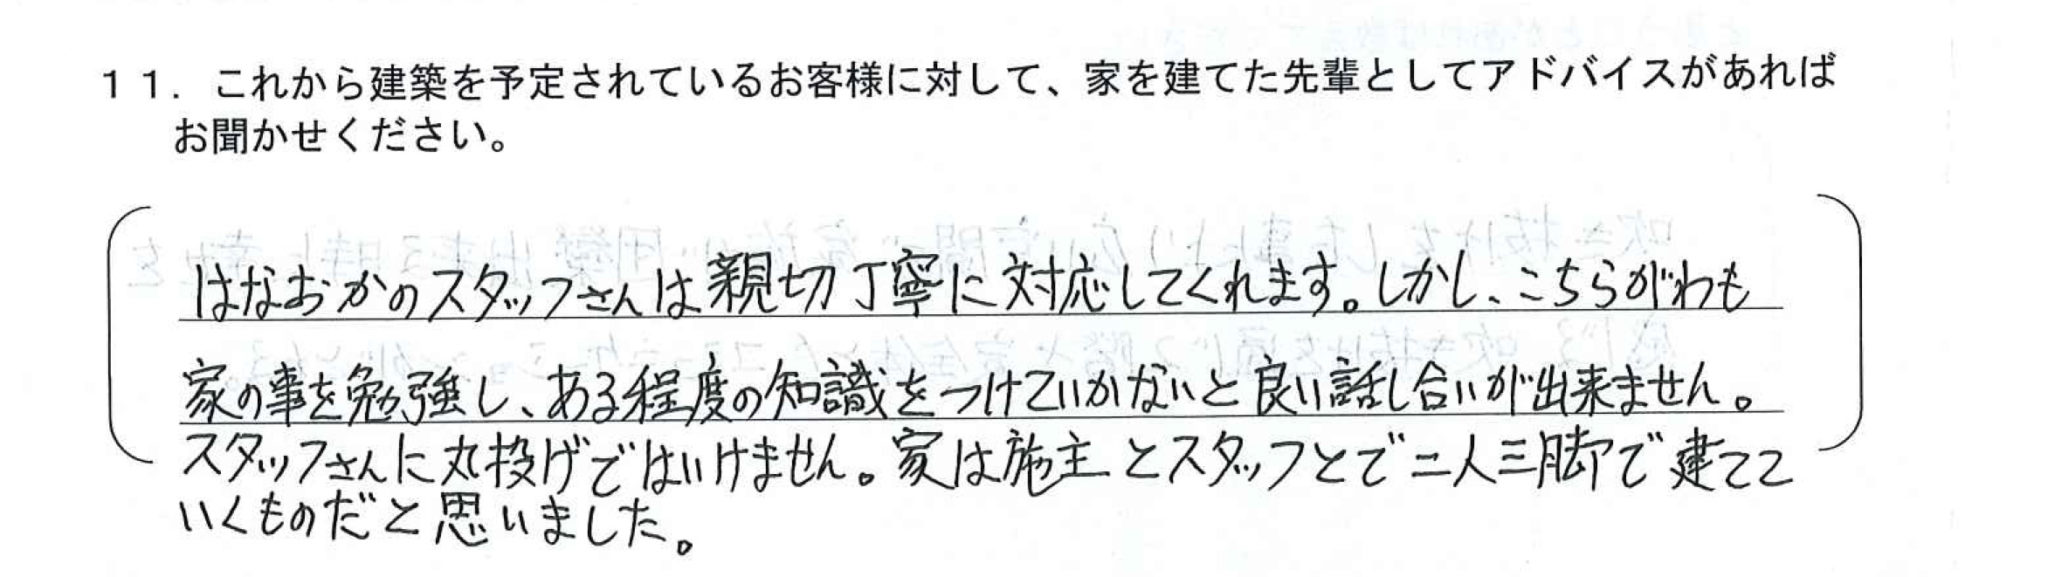 １１．これから建築を予定されているお客様に対して、家を建てた先輩としてアドバイスがあれば
お聞かせください。
はなおかのスタッフさんは親切丁寧に対応してくれます。しかし、こちらがわも
家の事を勉強し、ある程度の知識をつけていかないと良い話し合いが出来ません。
スタッフさんに丸投げではいけません。家は施主とスタッフとで二人三脚で建てて
いくものだと思いました。